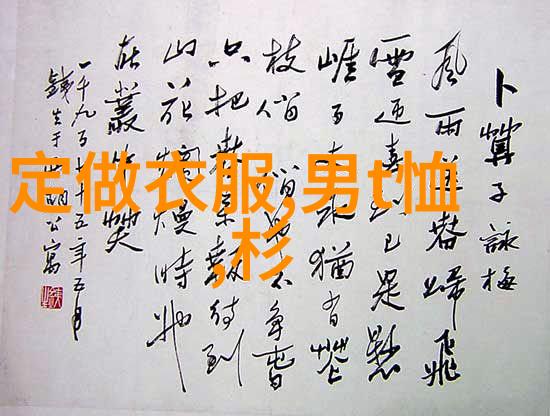 卜筭子詠梅
風雨送春歸飛
雪迎春到已是懸
崖百丈冰猶有花
枝俏俏也不爭春
只把春來報待到
山花爛熳時她
在叢中笑
一千九百七十五年五月
錢于明公寓
定做衣服,男t恤
,杉